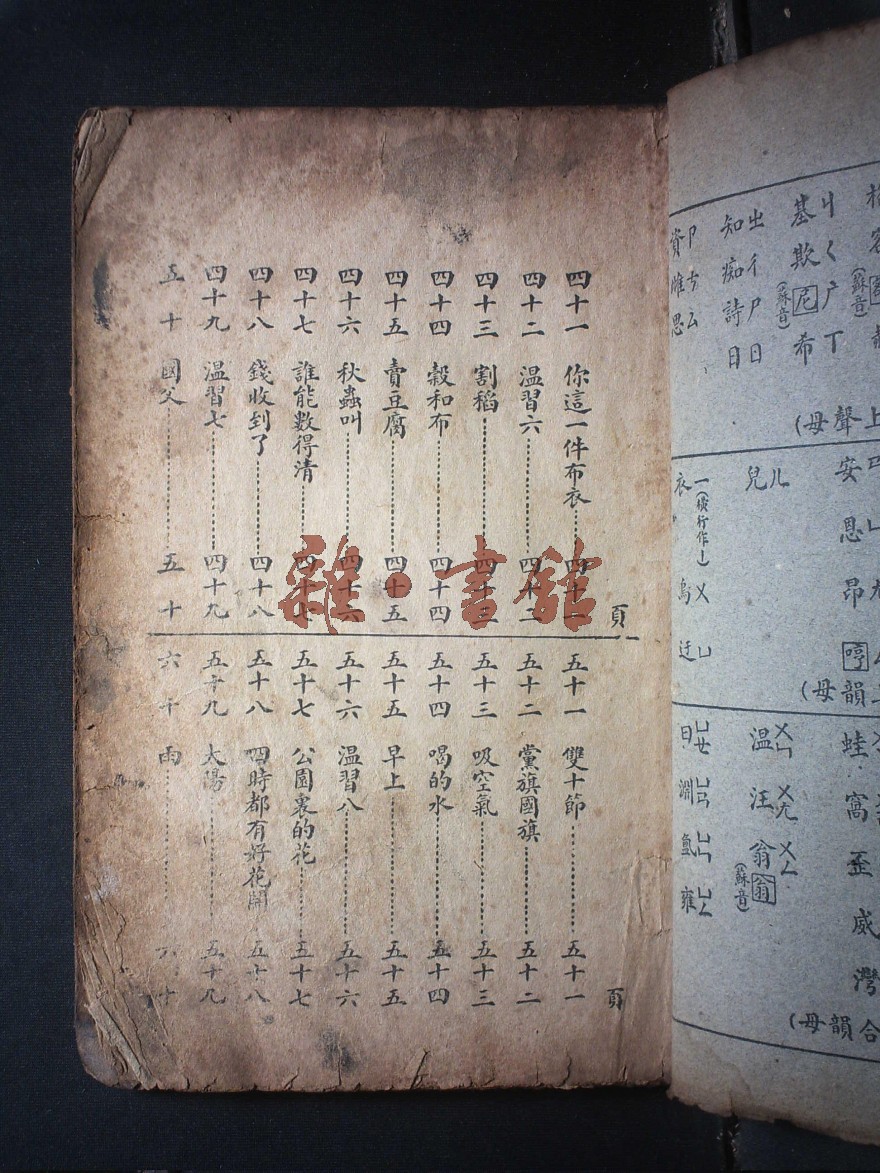 上聲母)
基欺尼(蘇音)希
ㄐㄑㄏㄒ
知痴詩日
ㄓㄔㄕㄖ
資雌思
ㄗㄘㄙ
安恩昂哼
韻母)
兒ㄦ
衣 烏 迂
一(橫行作丨) ㄨ ㄩ
蛙窩歪威灣
合韻母)
溫汪翁翁(蘇音)
ㄨㄣ ㄨㄤ ㄨㄥ
曰淵氳雍
ㄩㄝ ㄩㄢ ㄩㄣ ㄩㄥ
頁
四十一 你這一件布衣 四十一
四十二 温習六 四十二
四十三 割稻 四十三
四十四 穀和布 四十四
四十五 賣豆腐 四十五
四十六 秋蟲叫 四十六
四十七 誰能數得清 四十七
四十八 錢收到了 四十八
四十九 温習七 四十九
五十 國父 五十
頁
五十一 雙十節 五十一
五十二 黨旗國旗 五十二
五十三 吸空氣 五十三
五十四 喝的水 五十四
五十五 早上 五十五
五十六 温習八 五十六
五十七 公園裏的花 五十七
五十八 四時都有好花開 五十八
五十九 太陽 五十九
六十 雨 六十
雜·書館